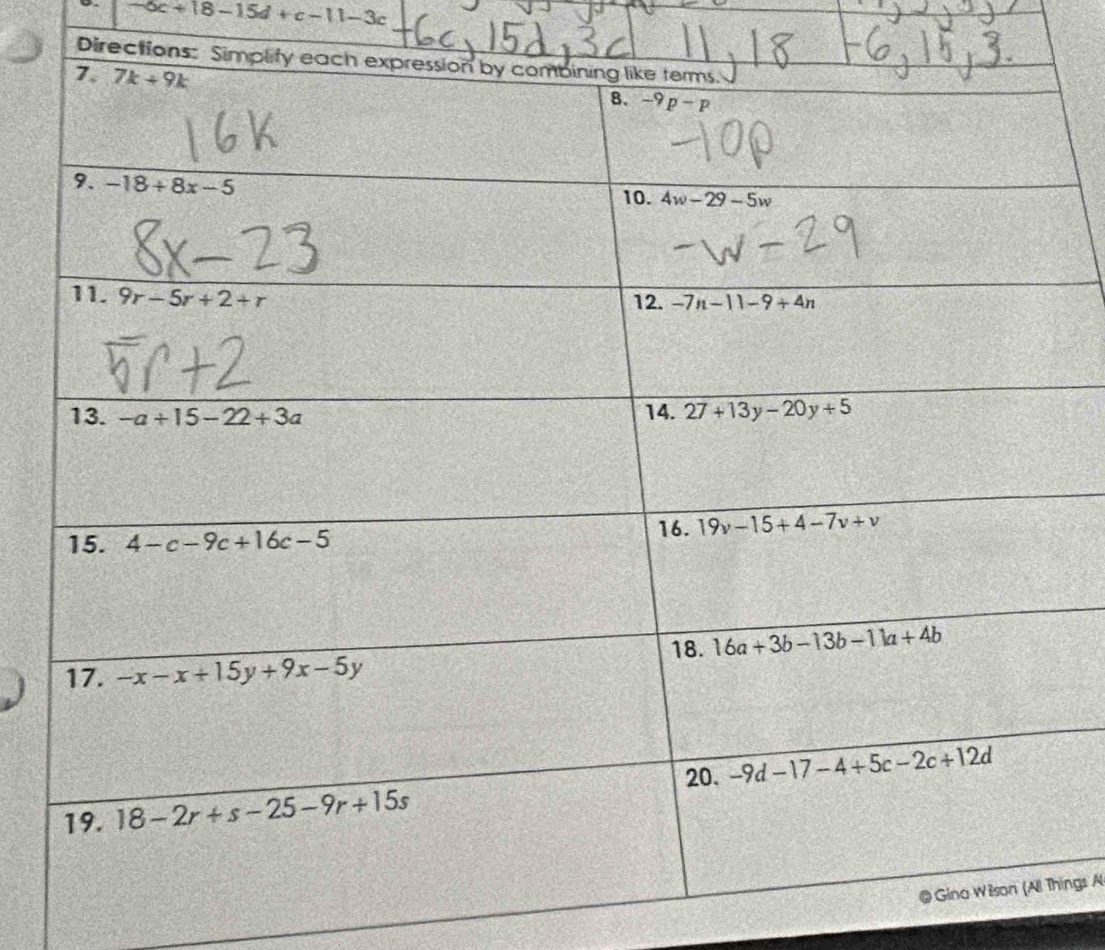 -6c+18-15d+c-11-3c +6c, 15d, 3c 11, 18 -6, 15, 3.
Directions: Simplify each expression by combining like terms.
7. 7k+9k
16K
8. -9p-p
-10p
9. -18+8x-5
8x-23
10. 4w-29-5w
-w-29
11. 9r-5r+2+r
5r+2
12. -7n-11-9+4n
13. -a+15-22+3a
14. 27+13y-20y+5
15. 4-c-9c+16c-5
16. 19v-15+4-7v+v
17. -x-x+15y+9x-5y
18. 16a+3b-13b-11a+4b
19. 18-2r+s-25-9r+15s
20. -9d-17-4+5c-2c+12d
© Gina Wilson (All Things Al